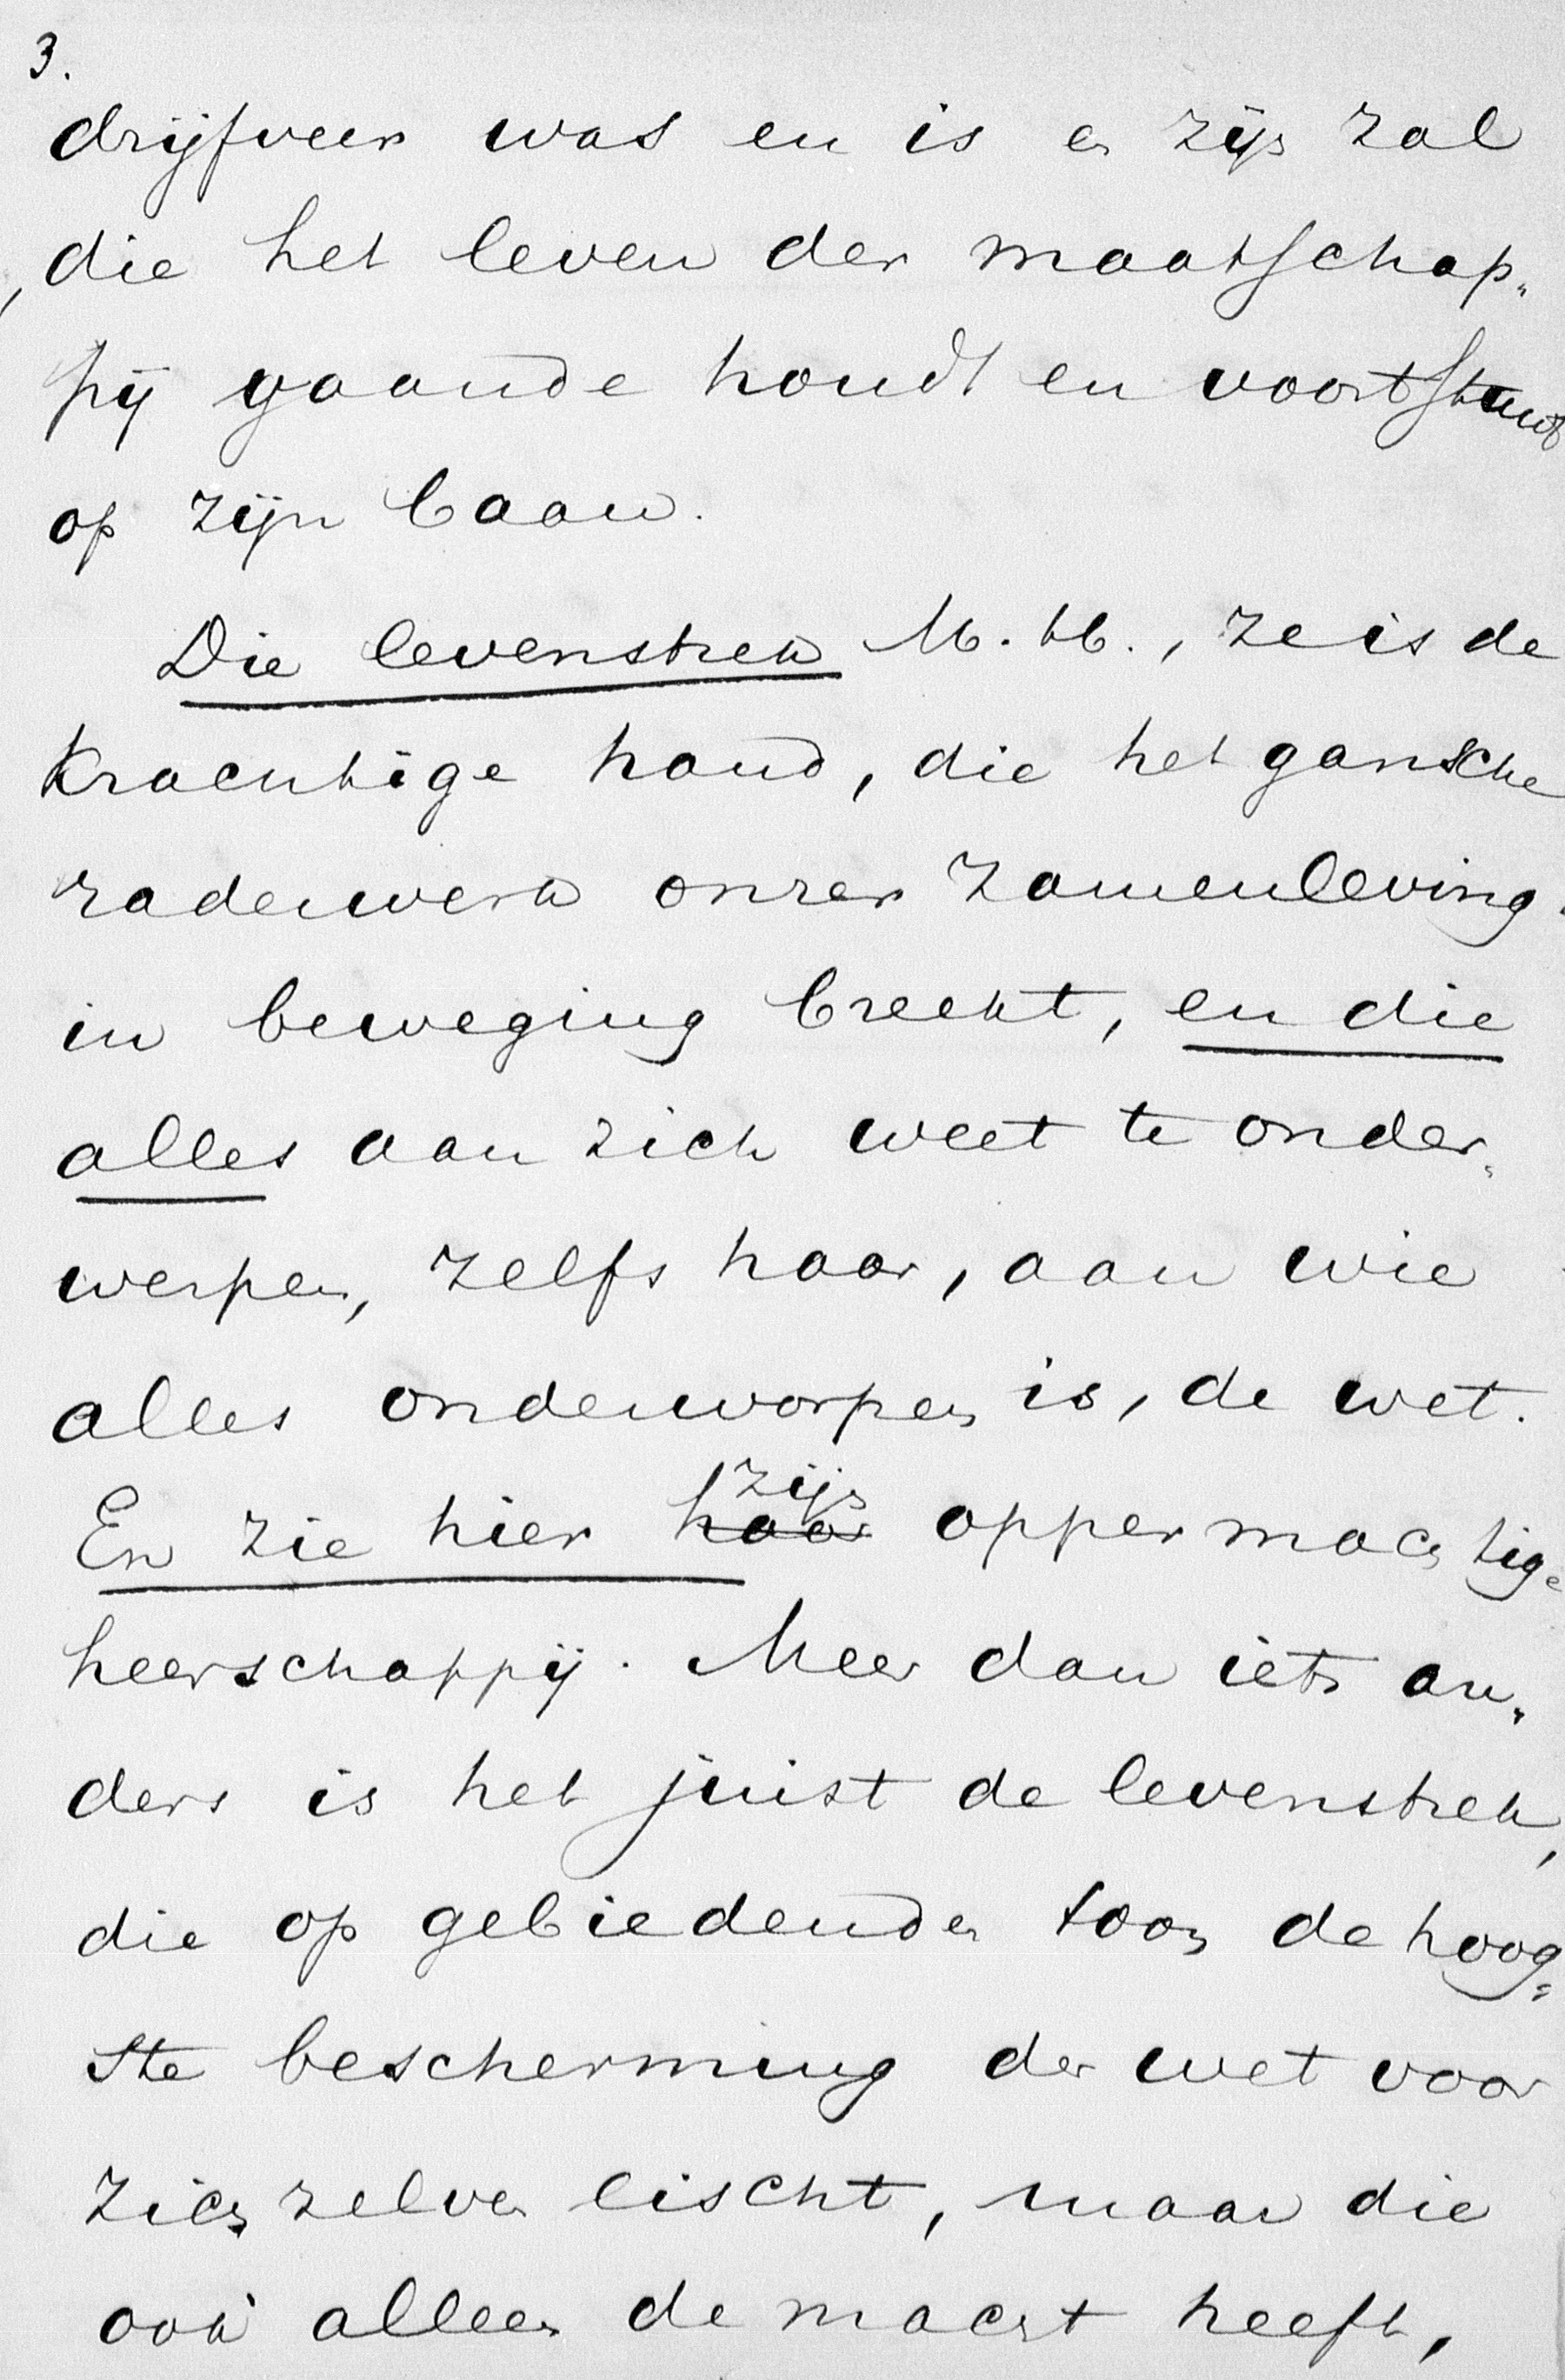 3.
drijfveer was en is en zijn zal
, die het leven der maatschap„
pij gaande houdt en voortstuwt
op zijn baan.
Die levenstrek M. H., ze is de
krachtige hand, die het gansche
raderwerk onzer zamenleving
in beweging brengt, en die
alles aan zich weet te onder„
werpen, zelfs haar, aan wie
alles onderworpen is, de wet.
En zie hier haar zijn oppermachtige
heerschappij. Meer dan iets an„
ders is het juist de levenstrek,
die op gebiedenden toon de hoog„
ste bescherming der wet voor
zich zelven eischt, maar die
ook alleen de macht heeft,